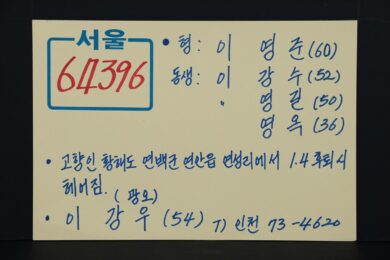 서울
64396
• 형: 이 영준 (60)
동생: 이 강수 (52)
〃 영길 (50)
영옥 (36)
• 고향인 황해도 연백군 연안읍 연성리에서 1.4 후퇴시
헤어짐. (광오)
• 이 강우 (54) T) 인천 73-4620